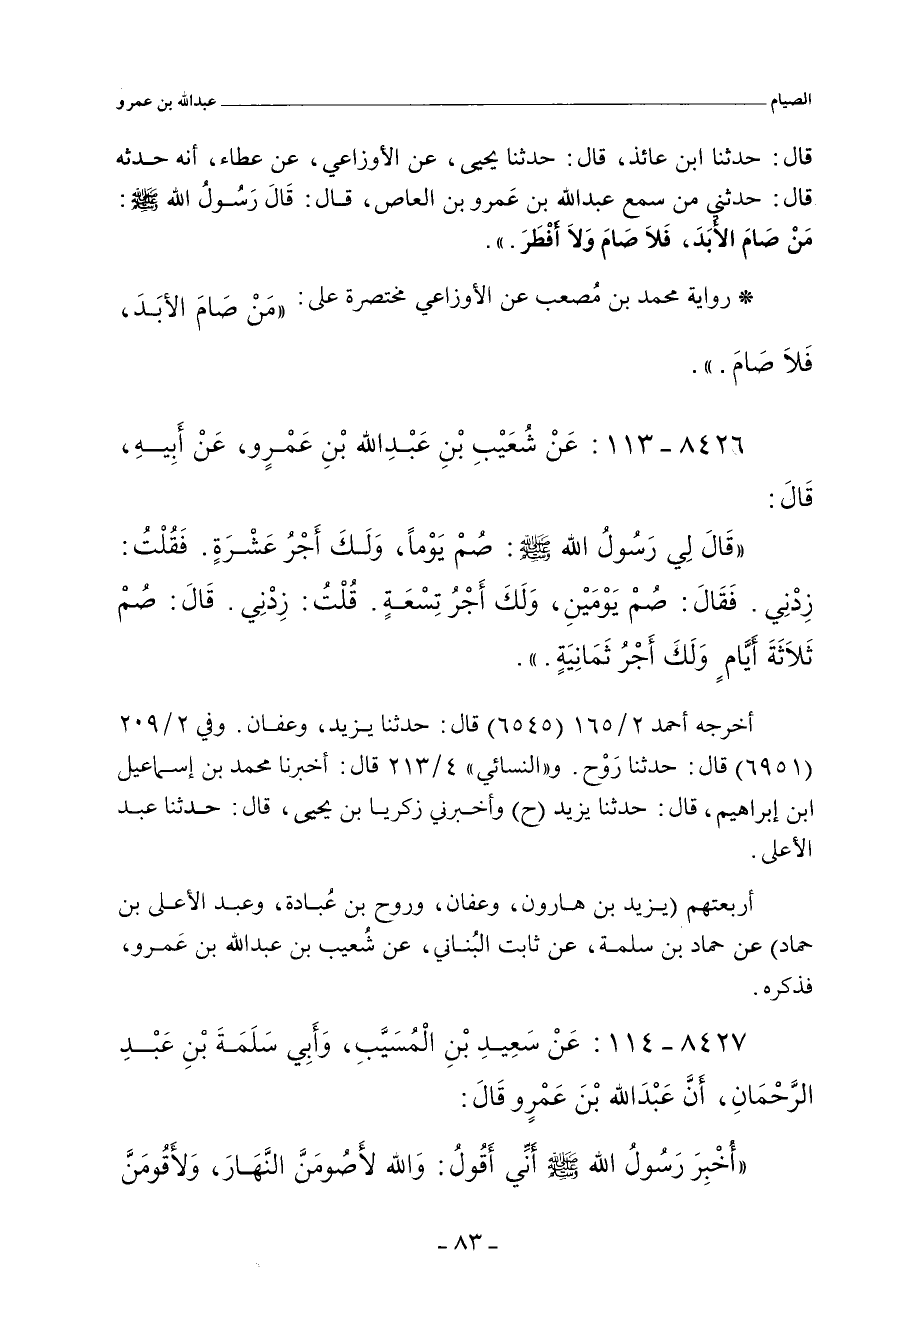 الصيام ــــــــــــــــــــ عبدالله بن عمرو
قال: حدثنا ابن عائذ، قال: حدثنا يحيى، عن الأوزاعي، عن عطاء، أنه حدثه
قال: حدثني من سمع عبدالله بن عَمرو بن العاص، قال: قَالَ رَسُولُ الله ﷺ:
مَنْ صَامَ الأَبَدَ، فَلاَ صَامَ وَلاَ أَفْطَرَ.».
* رواية محمد بن مُصعب عن الأوزاعي مختصرة على: «مَنْ صَامَ الأَبَدَ،
فَلاَ صَامَ.».
٨٤٢٦ ـ ١١٣: عَنْ شُعَيْبِ بْنِ عَبْدِالله بْنِ عَمْرٍو، عَنْ أَبِيهِ،
قَالَ:
«قَالَ لِي رَسُولُ الله ﷺ: صُمْ يَوْماً، وَلَكَ أَجْرُ عَشْرَةٍ. فَقُلْتُ:
زِدْنِي. فَقَالَ: صُمْ يَوْمَيْنِ، وَلَكَ أَجْرُ تِسْعَةٍ. قُلْتُ: زِدْنِي. قَالَ: صُمْ
ثَلاَثَةَ أَيَّامٍ وَلَكَ أَجْرُ ثَمَانِيَةٍ.».
أخرجه أحمد ١٦٥/٢ (٦٥٤٥) قال: حدثنا يزيد، وعفان. وفي ٢٠٩/٢
(٦٩٥١) قال: حدثنا رَوْح. و«النسائي» ٢١٣/٤ قال: أخبرنا محمد بن إسماعيل
ابن إبراهيم، قال: حدثنا يزيد (ح) وأخبرني زكريا بن يحيى، قال: حدثنا عبد
الأعلى.
أربعتهم (يزيد بن هارون، وعفان، وروح بن عُبادة، وعبد الأعلى بن
حماد) عن حماد بن سلمة، عن ثابت البُناني، عن شُعيب بن عبدالله بن عَمرو،
فذكره.
٨٤٢٧ ـ ١١٤: عَنْ سَعِيدِ بْنِ الْمُسَيَّبِ، وَأَبِي سَلَمَةَ بْنِ عَبْدِ
الرَّحْمَانِ، أَنَّ عَبْدَالله بْنَ عَمْرٍو قَالَ:
«أُخْبِرَ رَسُولُ الله ﷺ أَنِّي أَقُولُ: وَالله لأَصُومَنَّ النَّهَارَ، وَلأَقُومَنَّ
ـ ٨٣ ـ